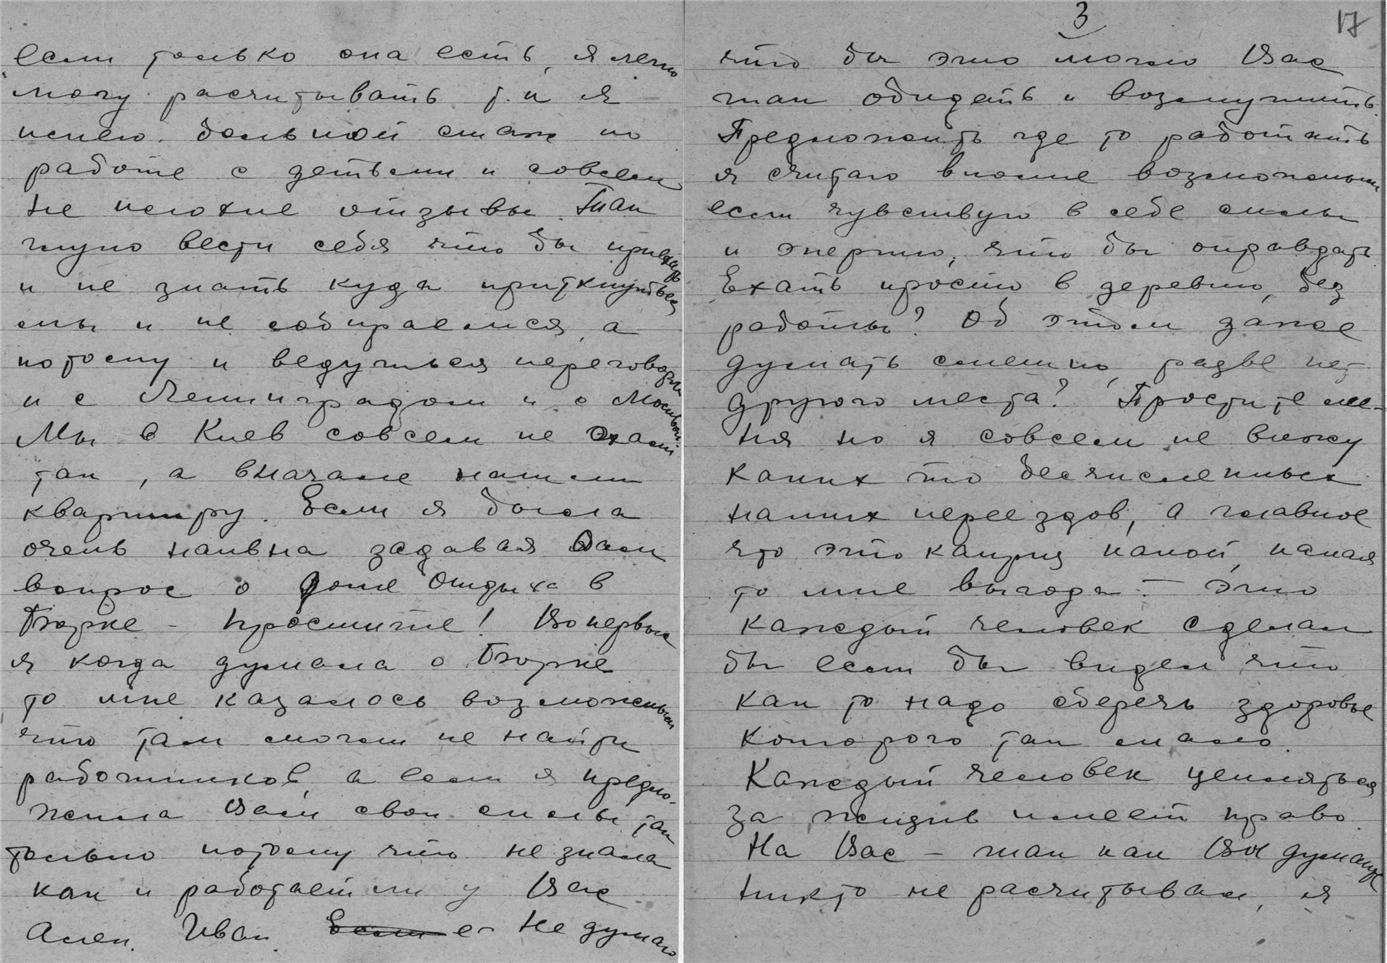 если только она есть, я легко
могу расчитывать т.к я
имею большой стаж по
работе с детьми и совсем
не плохие отзывы. Так
глупо вести себя что бы
и не знать куда приткнуться
мы и не собираемся, а
потому и ведуться переговоры
и с Ленинградом и с Москвой.
Мы в Киев совсем не ехали
так, а вначале нашли
квартиру. Если я была
очень наивна задавая Вам
вопрос о Доме Отдыха в
Бюрке – простите! Во первых
я когда думала о Бюрке
то мне казалось возможным
что там можем не найти
работников, а если я предло-
жила Вам свои силы так
только потому что не знала
как и работает ли у Вас
Алек. Иван. Если е– Не думаю
3
17
что бы это могло Вас
так обидеть и возмутить.
Предложить где то работать
я считаю вполне возможным
если чувствую в себе силы
и энергию, что бы оправдать.
Ехать просто в деревню, без
работы? Об этом даже
думать смешно, разве нет
другого места? Простите ме-
ня но я совсем не вижу
каких то бесчисленных
наших переездов, а главное
что это каприз какой, какая
то мне выгода – Это
каждый человек сделал
бы если бы видел что
как то надо сберечь здоровье
которого так мало.
Каждый человек цепляться
за жизнь имеет право.
На Вас – так как Вы думаете
никто не расчитывал, я